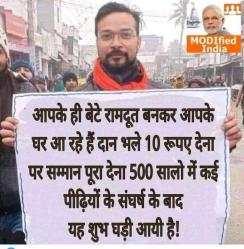 MODIfied
India
आपके ही बेटे रामदूत बनकर आपके
घर आ रहे हैं दान भले 10 रूपए देना
पर सम्मान पूरा देना 500 सालो में कई
पीढ़ियों के संघर्ष के बाद
यह शुभ घड़ी आयी है!